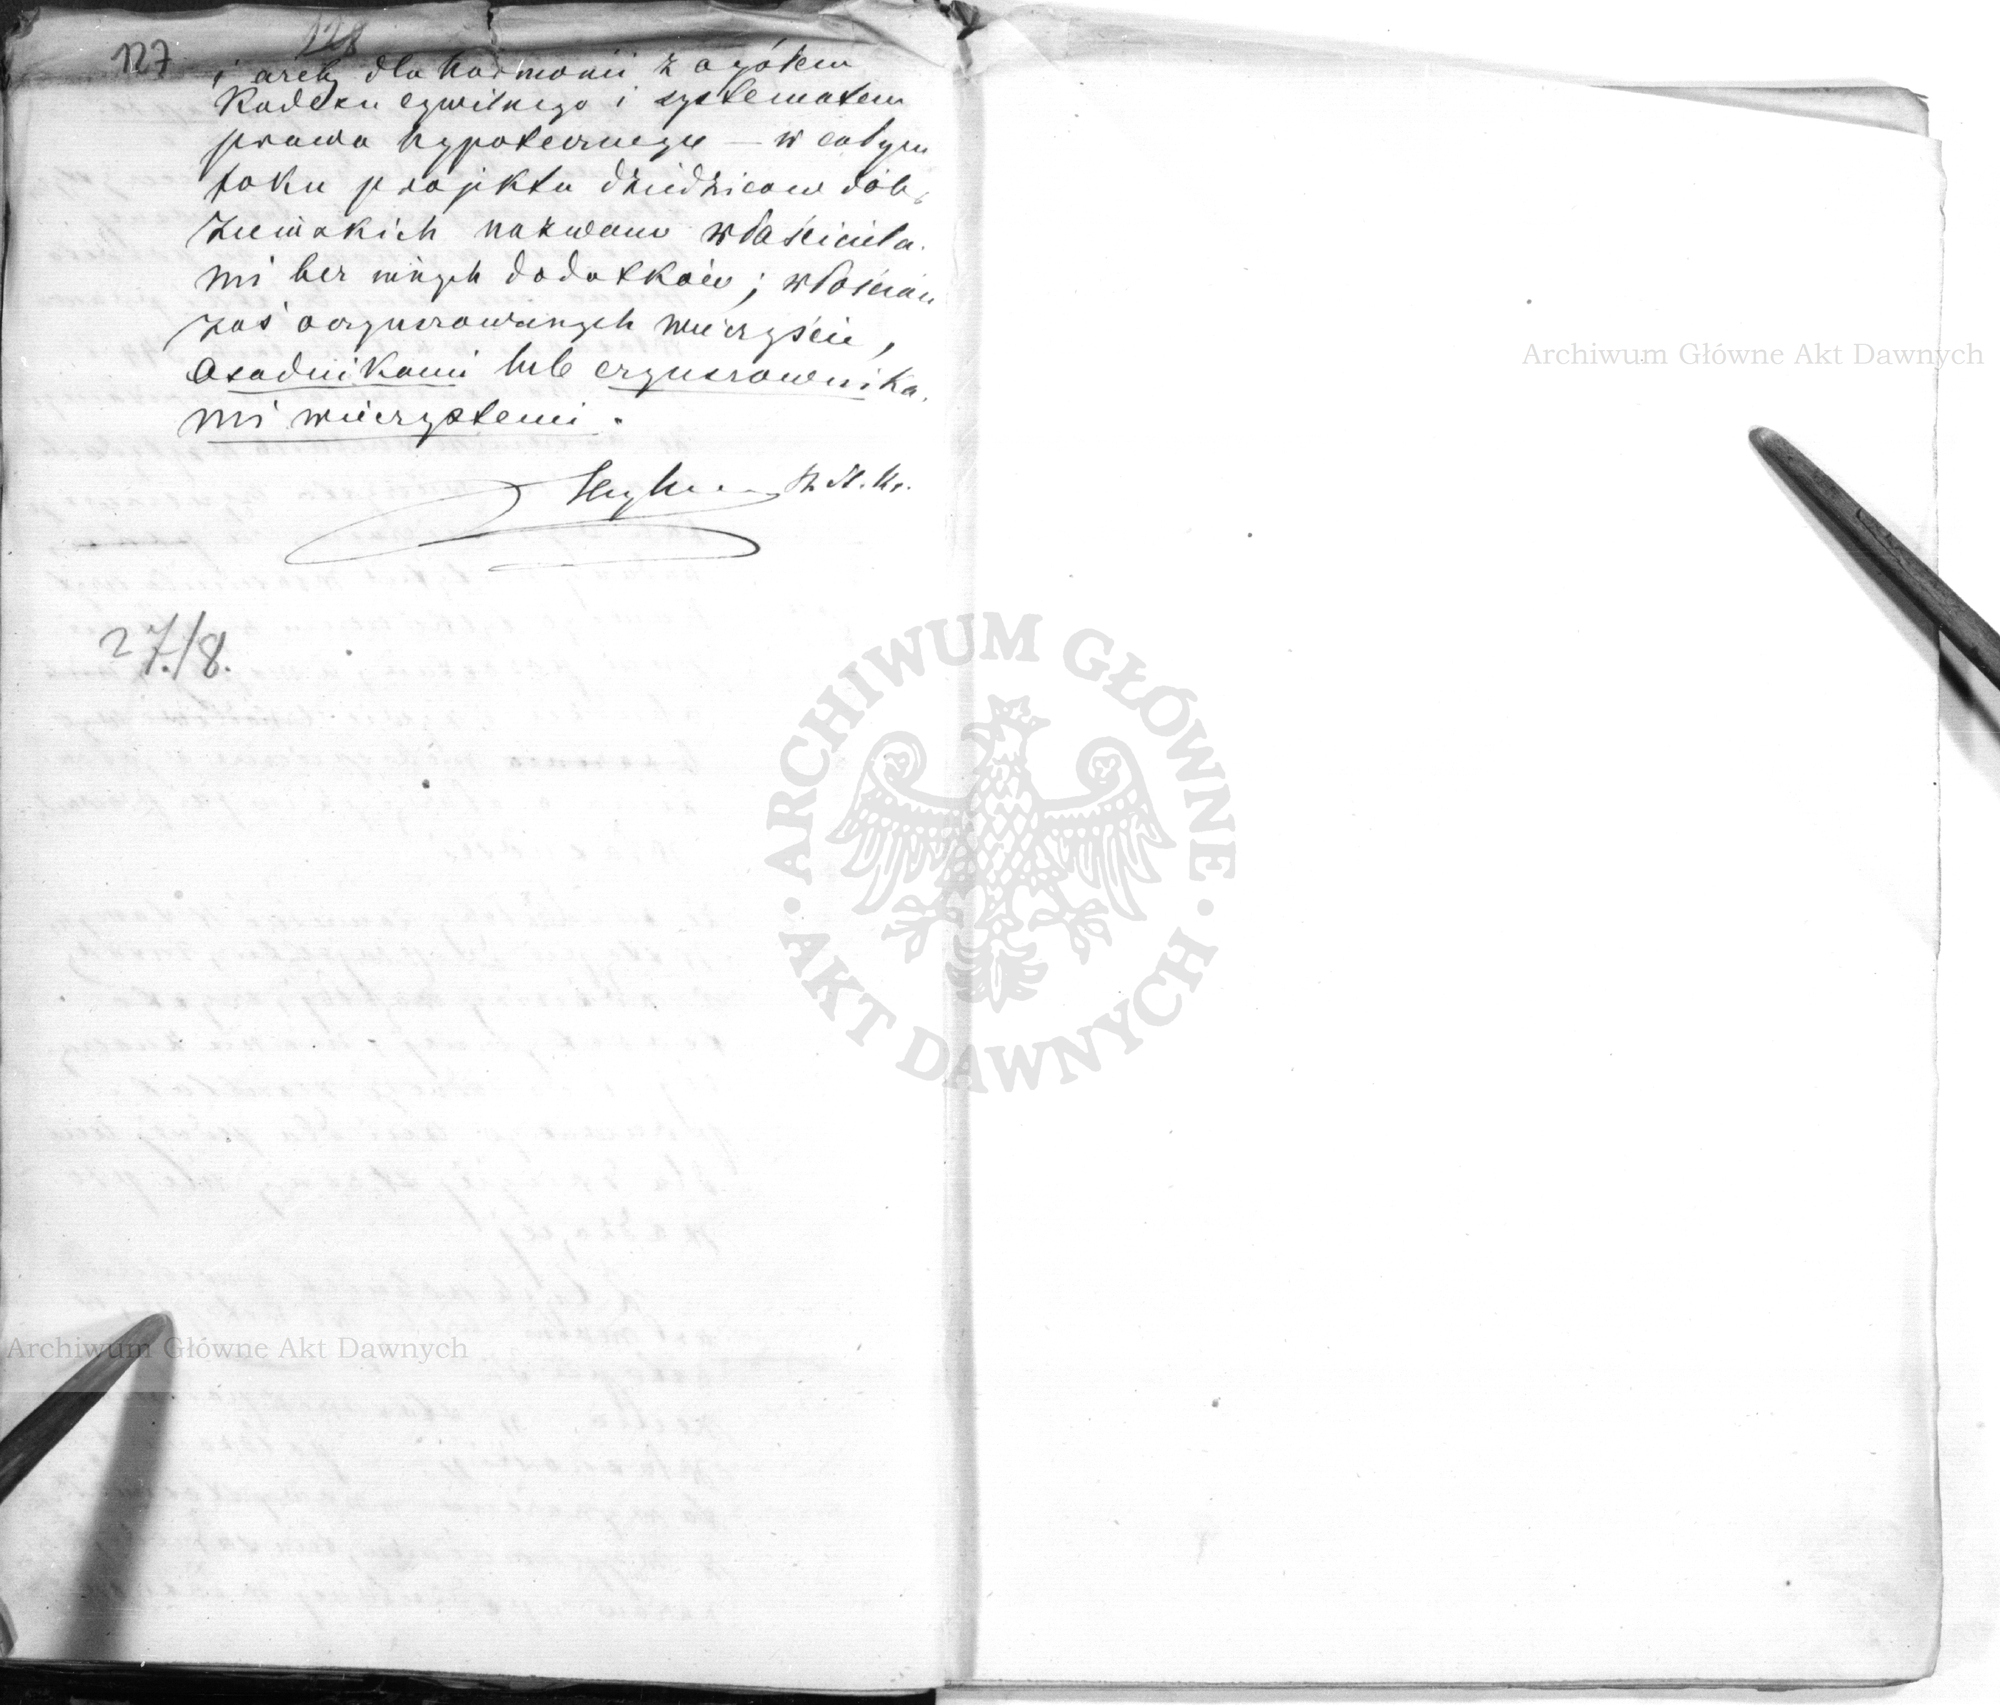 127 128
i ażeby dla harmonii z ogółem
Kodexu cywilnego i systematem
prawa hypotecznego — w całym
toku projektu dziedziców dóbr
ziemskich nazwano właściciela-
mi bez innych dodatków; włościan
zaś oczynszowanych wieczyście,
osadnikami lub czynszownika-
mi wieczystemi.
27./8.
Archiwum Główne Akt Dawnych
ARCHIWUM GŁÓWNE · AKT DAWNYCH ·
Archiwum Główne Akt Dawnych